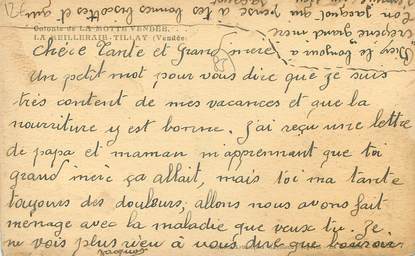 Ton jacquot qui pense à tes bonnes bisettes et qui
grand mère
Colonie de LA MOTHE VENDÉE.
LA MEILLERAIE-TILLAY (Vendée)
Chère Tante et Grand mère
Un petit mot pour vous dire que je suis
très content de mes vacances et que la
nourriture y est bonne. J'ai reçu une lettre
de papa et maman m'apprennant que toi
grand mère ça allait, mais toi ma tante
toujours des douleurs, allons nous avons fait
ménage avec la maladie que veux tu. Je
ne vois plus rien à vous dire que bonsoir
Jacquot